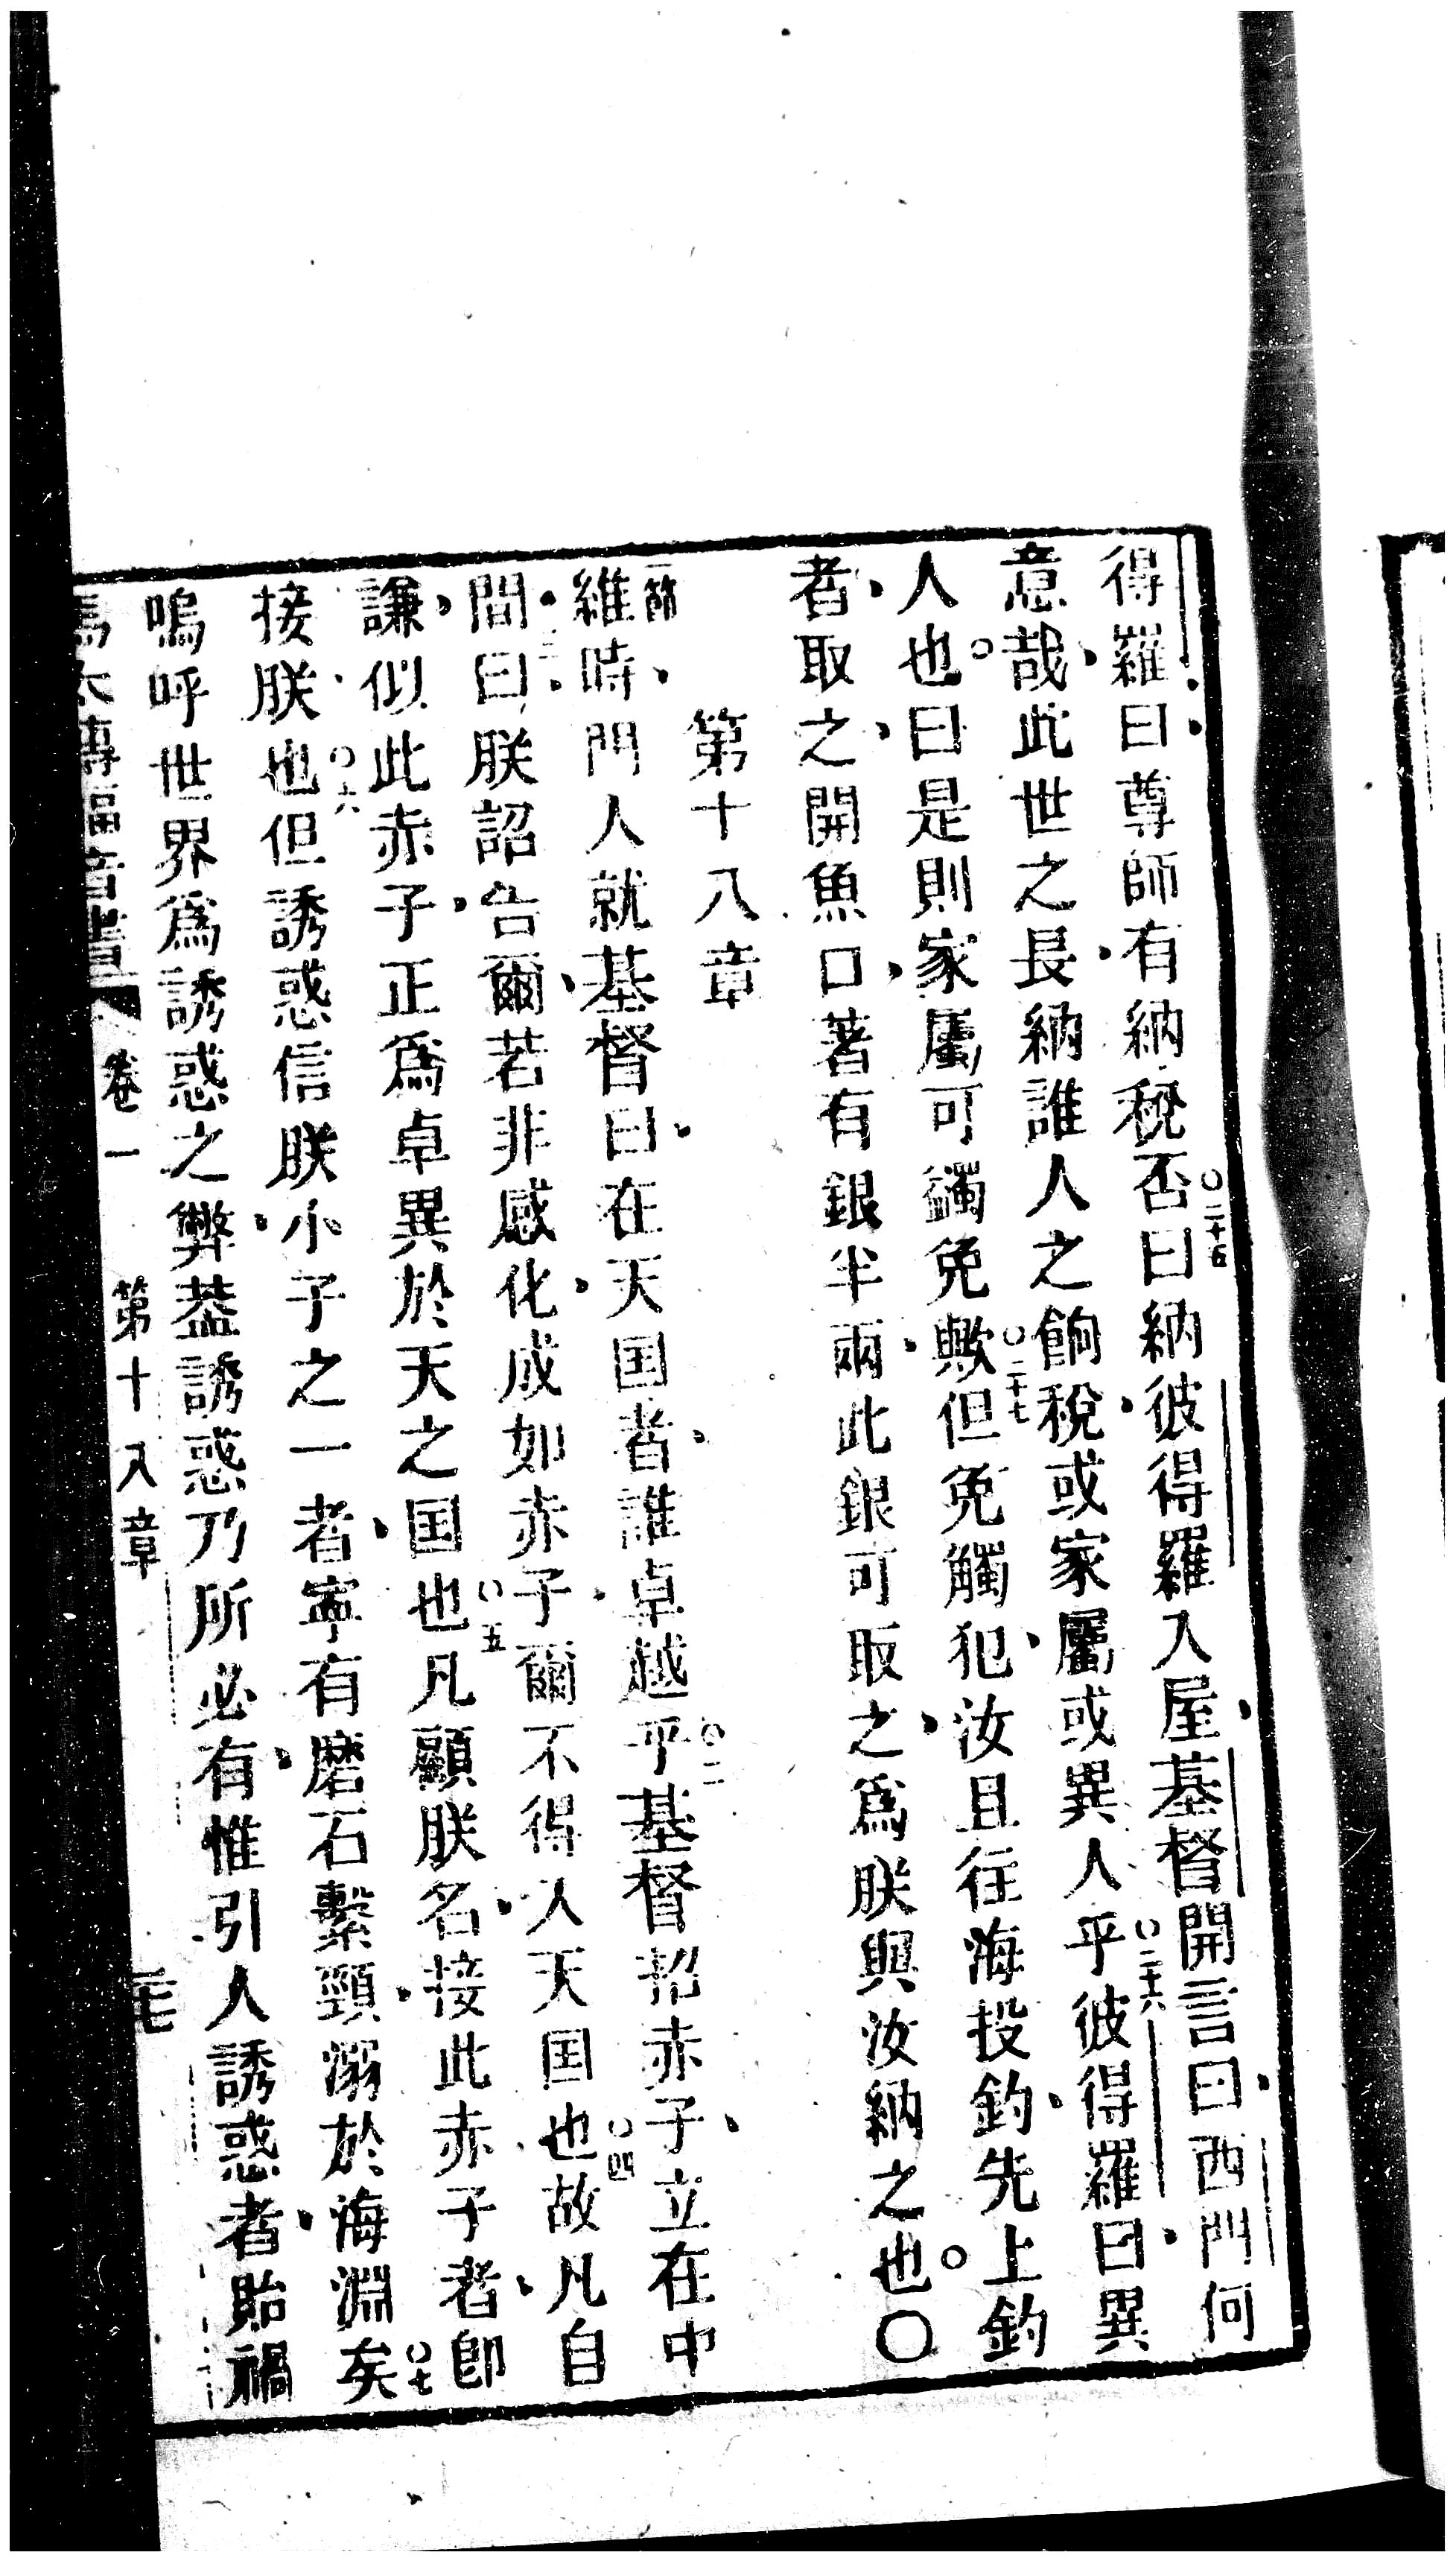 得羅曰尊師有納稅否〇二十五曰納彼得羅入屋基督開言曰西門何
意哉此世之長納誰人之餉稅或家屬或異人乎〇二十六彼得羅曰異
人也曰是則家屬可蠲免歟〇二十七但免觸犯汝且往海投釣先上釣
者取之開魚口著有銀半兩此銀可取之爲朕與汝納之也〇
第十八章
一節維時門人就基督曰在天囯者誰卓越乎〇二基督招赤子立在中
間三曰朕詔告爾若非感化成如赤子爾不得入天囯也〇四故凡自
謙似此赤子正爲卓異於天之囯也〇五凡顧朕名接此赤子者卽
接朕也〇六但誘惑信朕小子之一者寧有磨石繫頸溺於海淵矣〇七
嗚呼世界爲誘惑之弊葢誘惑乃所必有惟引人誘惑者貽禍
馬太傳福音書 卷一 第十八章 二十七